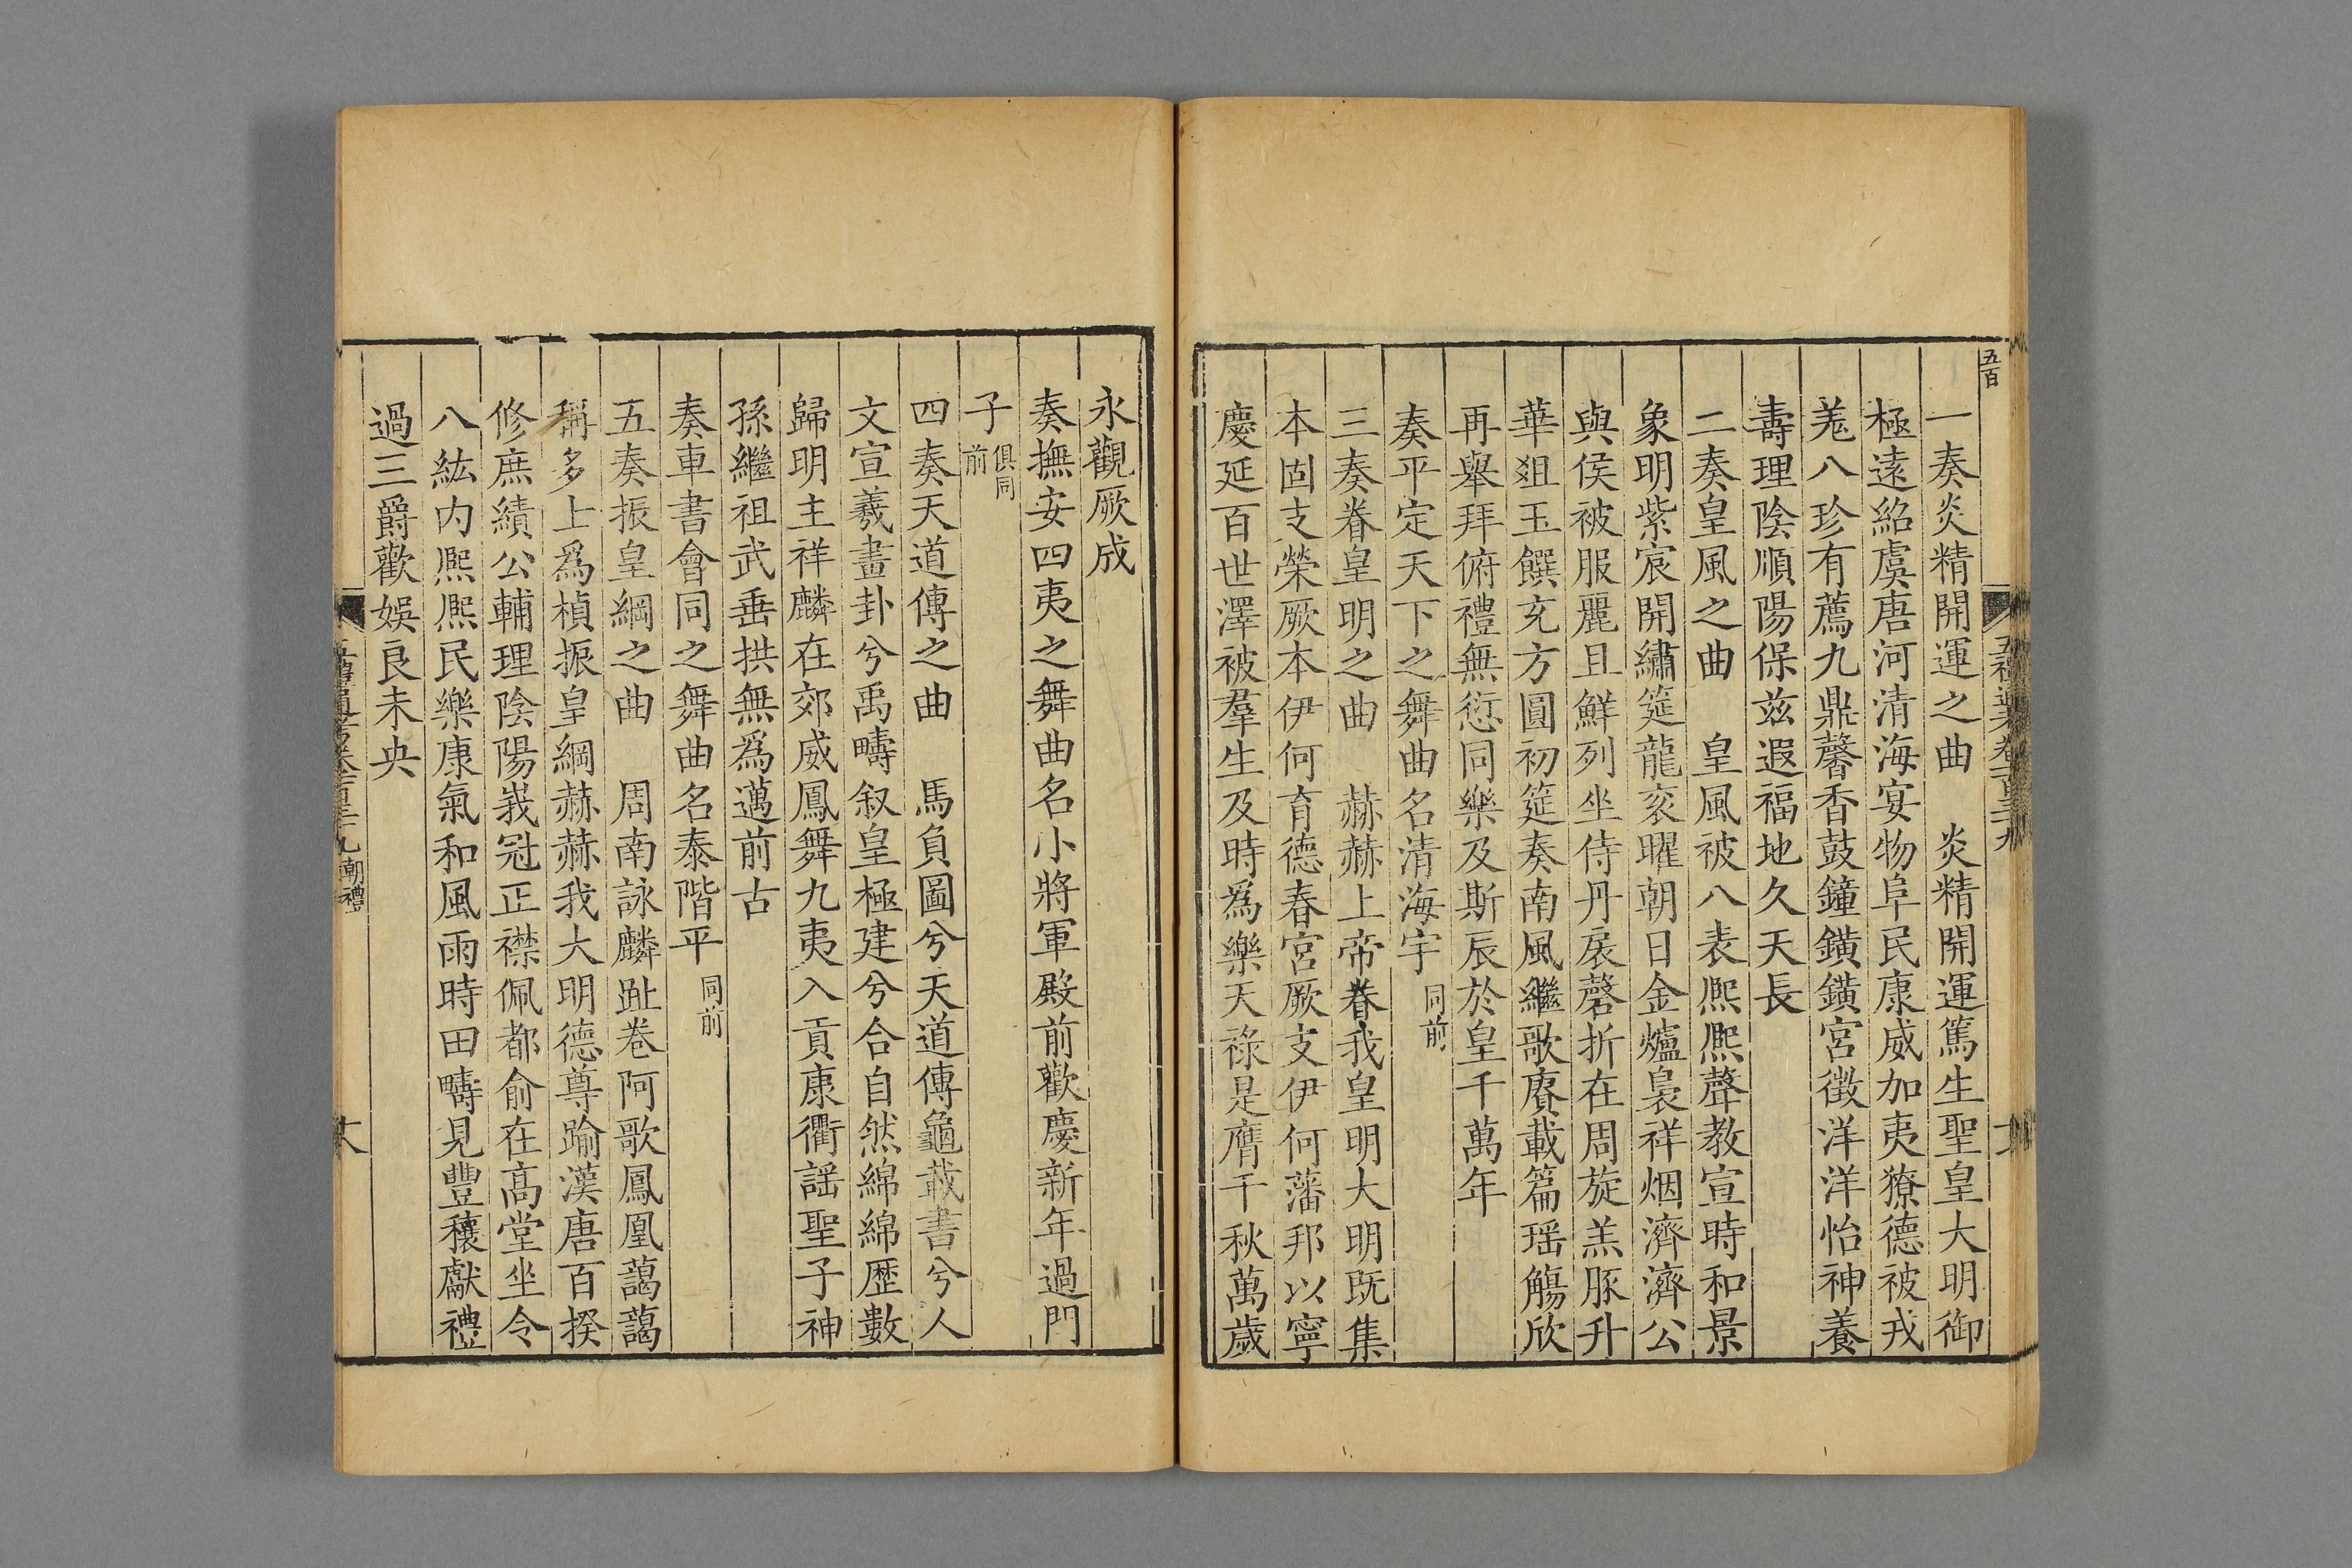 五百
一奏炎精開運之曲　炎精開運篤生聖皇大明御
極遠紹虞唐河清海宴物阜民康威加夷獠德被戎
羗八珍有薦九鼎馨香鼓鐘鐄鐄宮徵洋洋怡神養
壽理陰順陽保兹遐福地久天長
二奏皇風之曲　皇風被八表熈熈聲教宣時和景
象明紫宸開繡筵龍衮曜朝日金爐裊祥烟濟濟公
與侯被服麗且鮮列坐侍丹扆磬折在周旋羔豚升
華俎玉饌充方圓初筵奏南風繼歌賡載篇瑶觴欣
再舉拜俯禮無愆同樂及斯辰於皇千萬年
奏平定天下之舞曲名清海宇同前
三奏眷皇明之曲　赫赫上帝眷我皇明大明既集
本固支榮厥本伊何育德春宮厥支伊何藩邦以寧
慶延百世澤被羣生及時為樂天祿是膺千秋萬歲
永觀厥成
奏撫安四夷之舞曲名小將軍殿前歡慶新年過門
子俱同前
四奏天道傳之曲　馬負圖兮天道傳龜載書兮人
文宣羲畫卦兮禹疇叙皇極建兮合自然綿綿歷數
歸明主祥麟在郊威鳳舞九夷入貢康衢謡聖子神
孫繼祖武垂拱無為邁前古
奏車書會同之舞曲名泰階平同前
五奏振皇綱之曲　周南詠麟趾卷阿歌鳳凰藹藹
稱多士為楨振皇綱赫赫我大明德尊踰漢唐百揆
修庶績公輔理陰陽峩冠正襟佩都俞在高堂坐令
八紘内熈熈民樂康氣和風雨時田疇見豐穰獻禮
過三爵歡娛良未央
朝禮